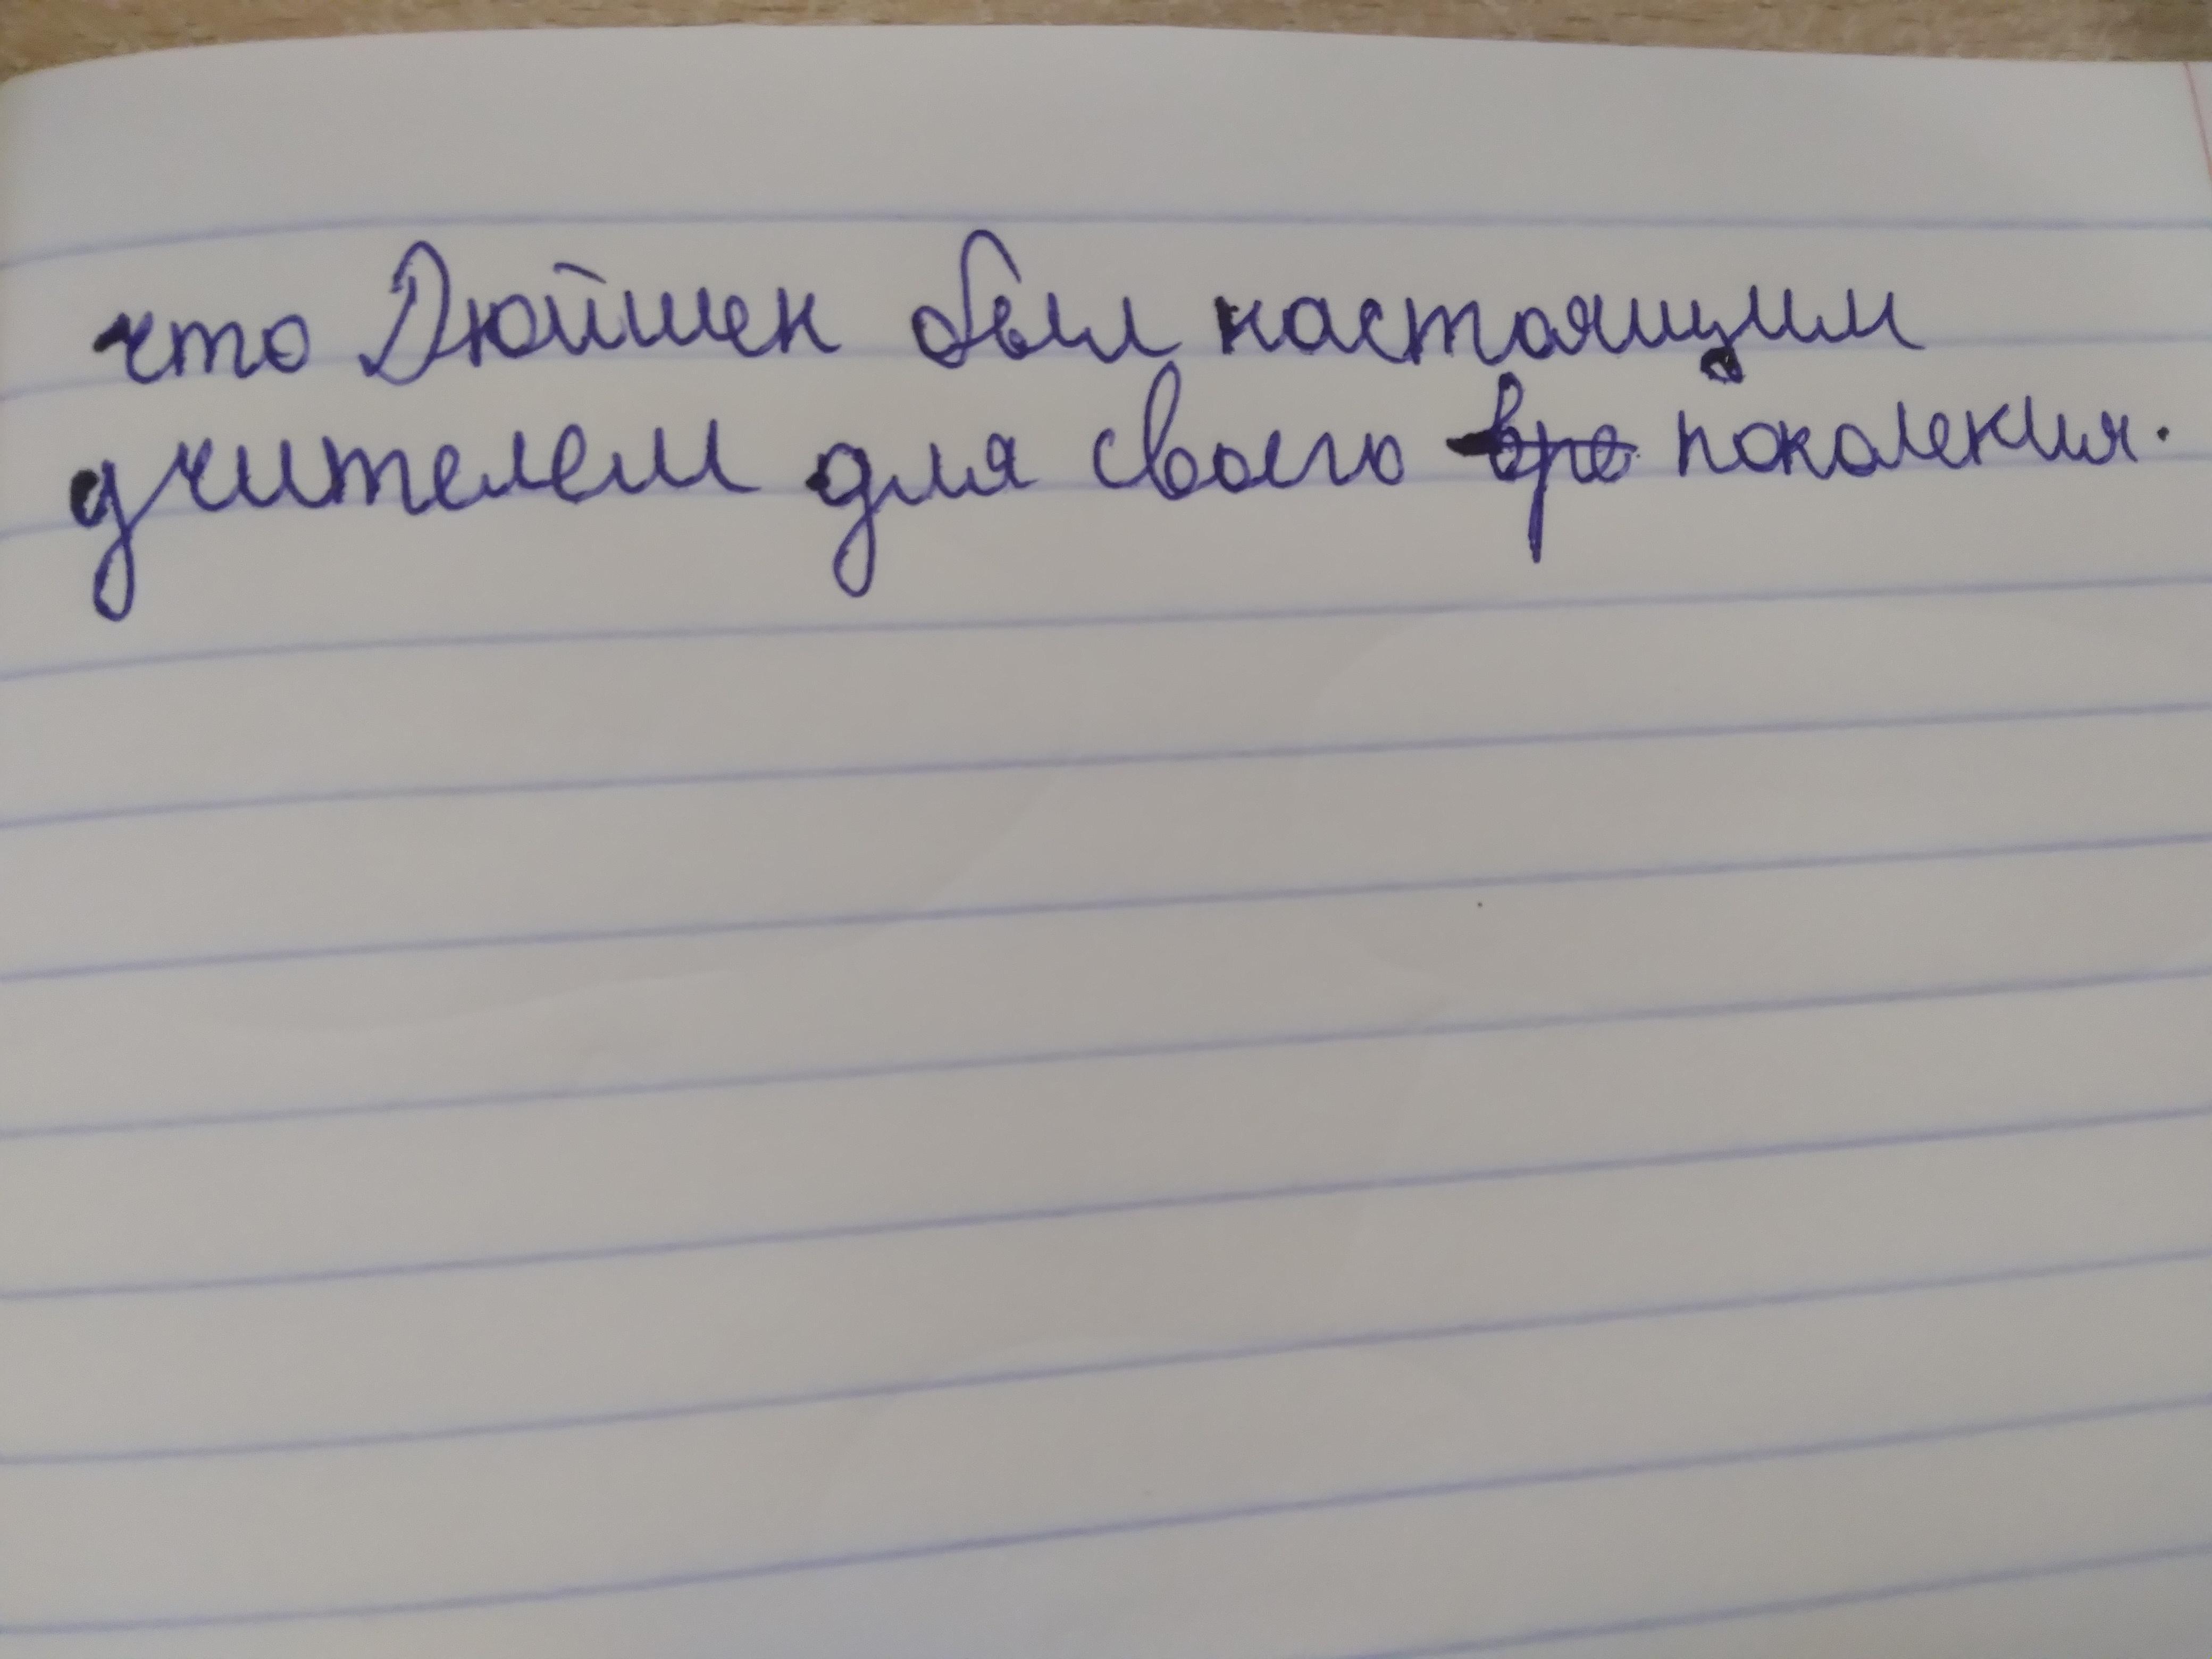 что Дюйшен был настоящим
учителем для своего вре поколения.